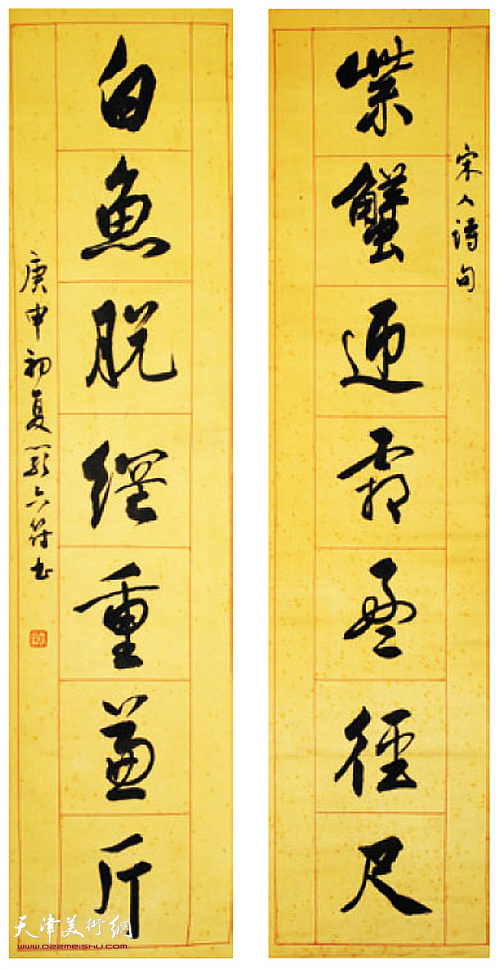 宋人詩句
紫蟹迎霜盈徑尺
白魚脱網重兼斤
庚申初夏严六符书
天津美術網
www.022meishu.com